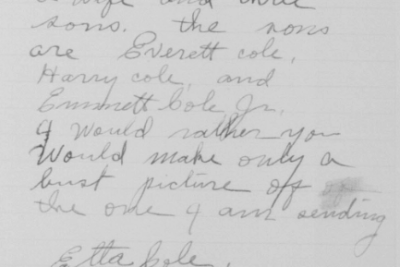 a wife and three
sons. the sons
are Everett cole,
Harry cole, and
Emmett Cole Jr.
I would rather you
would make only a
bust picture of
the one I am sending
Etta Cole,